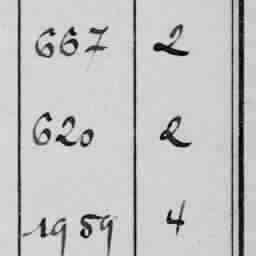 667 2
620 2
1959 4